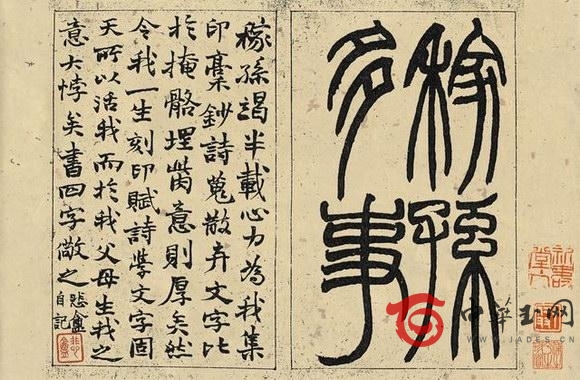 稼孫
多事
稼孫竭半載心力為我集
印稾鈔詩蒐散弃文字比
於掩骼埋胔意則厚矣然
令我一生刻印賦詩學文字固
天所以活我而於我父母生我之
意大悖矣書四字儆之
悲盦
自記
悲盦
中华玉网
WWW.JADES.CN